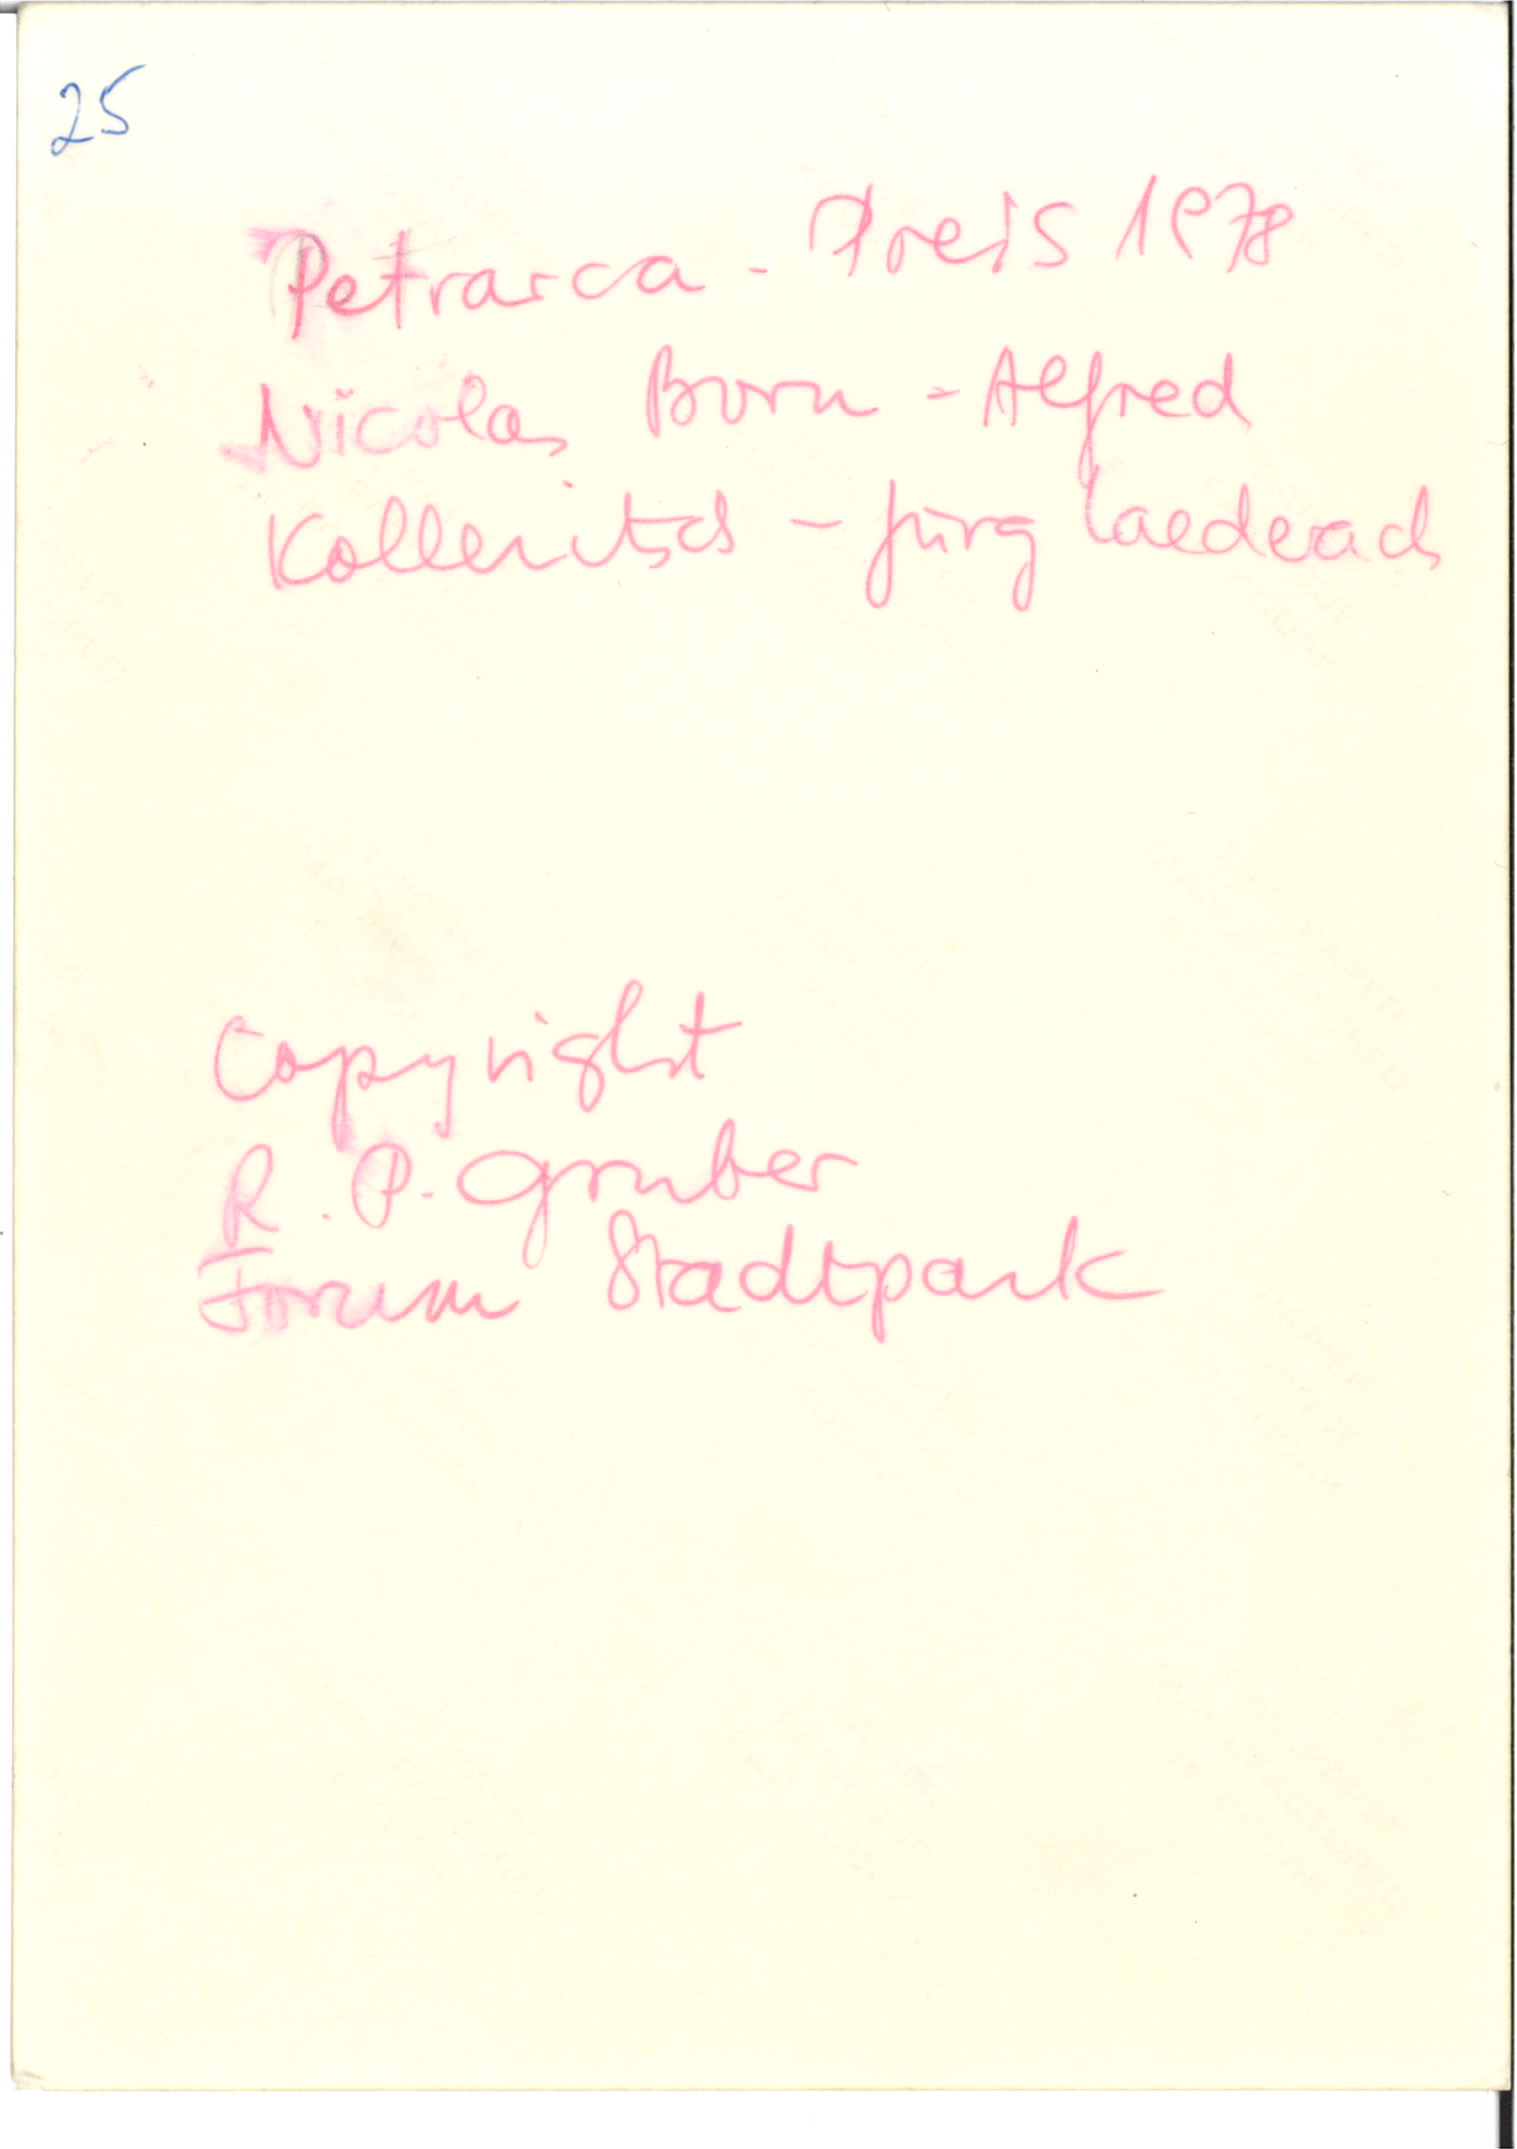 25
Petrarca - Preis 1978
Nicolas Born - Alfred
Kolleritsch - Jürg Laederach
Copyright
R. P. Gruber
Forum Stadtpark